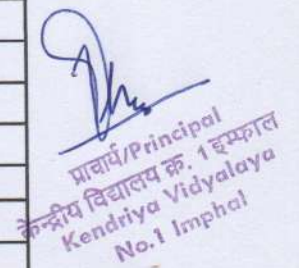 प्राचार्य/Principal
केन्द्रीय विद्यालय क्र. 1 इम्फाल
Kendriya Vidyalaya
No.1 Imphal